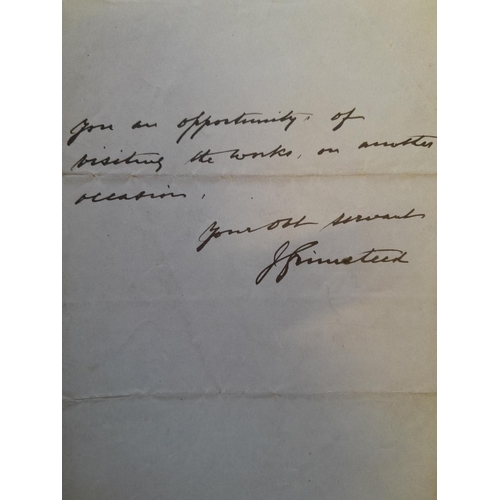 you an opportunity, of
visiting the works, on another
occasion.
Your Obt servant
J Grimsteed